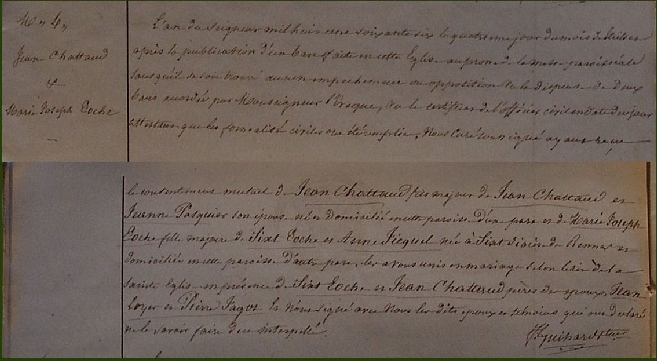 M. 4.
Jean Chattaud
&
Marie Joseph Eoche
L'an du Seigneur mil huit cent soixante six le quatrieme jour du mois de
après la publication d'un ban faite en cette Eglise au prone de la messe paroissiale
sans qu'il se soit trouvé aucun empechement ou opposition Vu la dispense de deux
bans accordée par Monseigneur l'Evêque, Vu le certificat de l'officier civil en date du jour
attestant que les formalités civiles ont été remplies, Nous Curé soussigné ayant reçu
le consentement mutuel de Jean Chattaud fils majeur de Jean Chattaud et
Jeanne Pasquier son épouse né et domicilié en cette paroisse d'une part et de Marie Joseph
Eoche fille majeure de Sixt Eoche et Anne née à Sixt diocèse de Rennes et
domiciliée en cette paroisse d'autre part, les avons unis en mariage selon de la
Sainte Eglise en présence de Sixt Eoche et Jean Chattaud pères des époux, Jean
Loyer et Pierre Jagot Ont signé avec Nous les dits époux et témoins qui ont déclaré
ne le savoir faire de ce interpellé.
Guihard